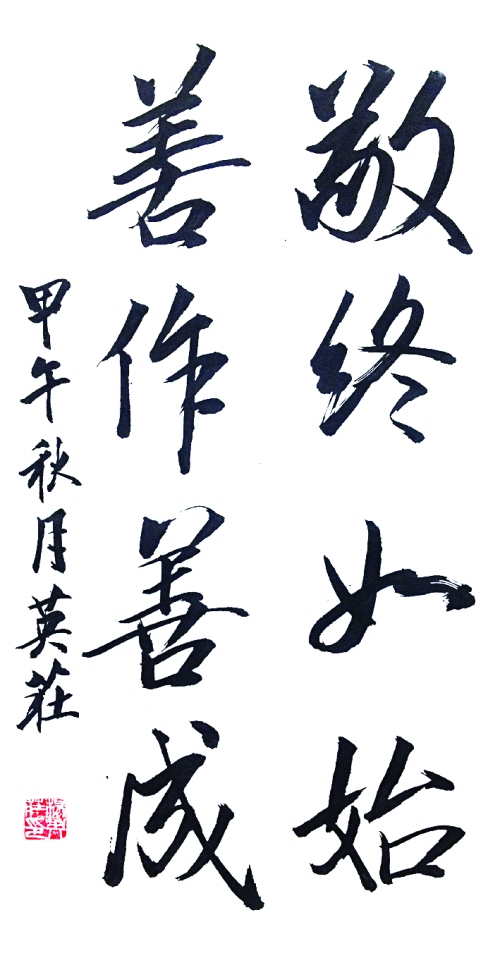 敬终如始
善作善成
甲午秋月英莊